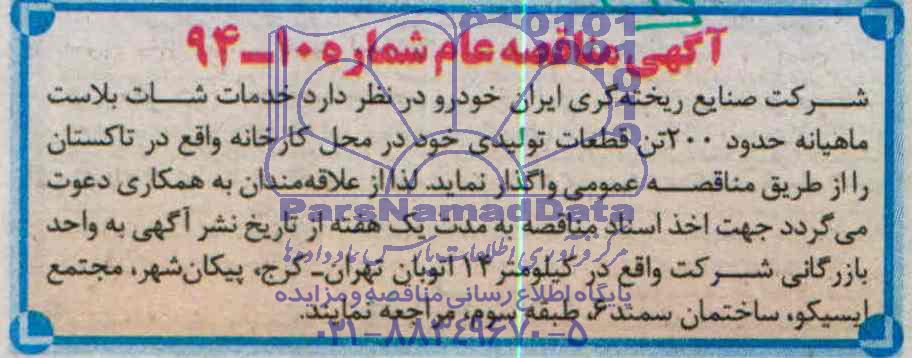 آگهی مناقصه عام شماره ۱۰-۹۴
شرکت صنایع ریخته‌گری ایران خودرو در نظر دارد خدمات شات بلاست
ماهیانه حدود ۲۰۰تن قطعات تولیدی خود در محل کارخانه واقع در تاکستان
را از طریق مناقصه عمومی واگذار نماید. لذا از علاقه‌مندان به همکاری دعوت
می‌گردد جهت اخذ اسناد مناقصه به مدت یک هفته از تاریخ نشر آگهی به واحد
بازرگانی شرکت واقع در کیلومتر ۱۴ اتوبان تهران-کرج، پیکان‌شهر، مجتمع
ایسیکو، ساختمان سمند ۶، طبقه سوم، مراجعه نمایند.
ParsNamadData
مرکز فرآوری اطلاعات پارس نماد داده‌ها
پایگاه اطلاع رسانی مناقصه و مزایده
۰۲۱-۸۸۳۴۹۶۷۰-۵